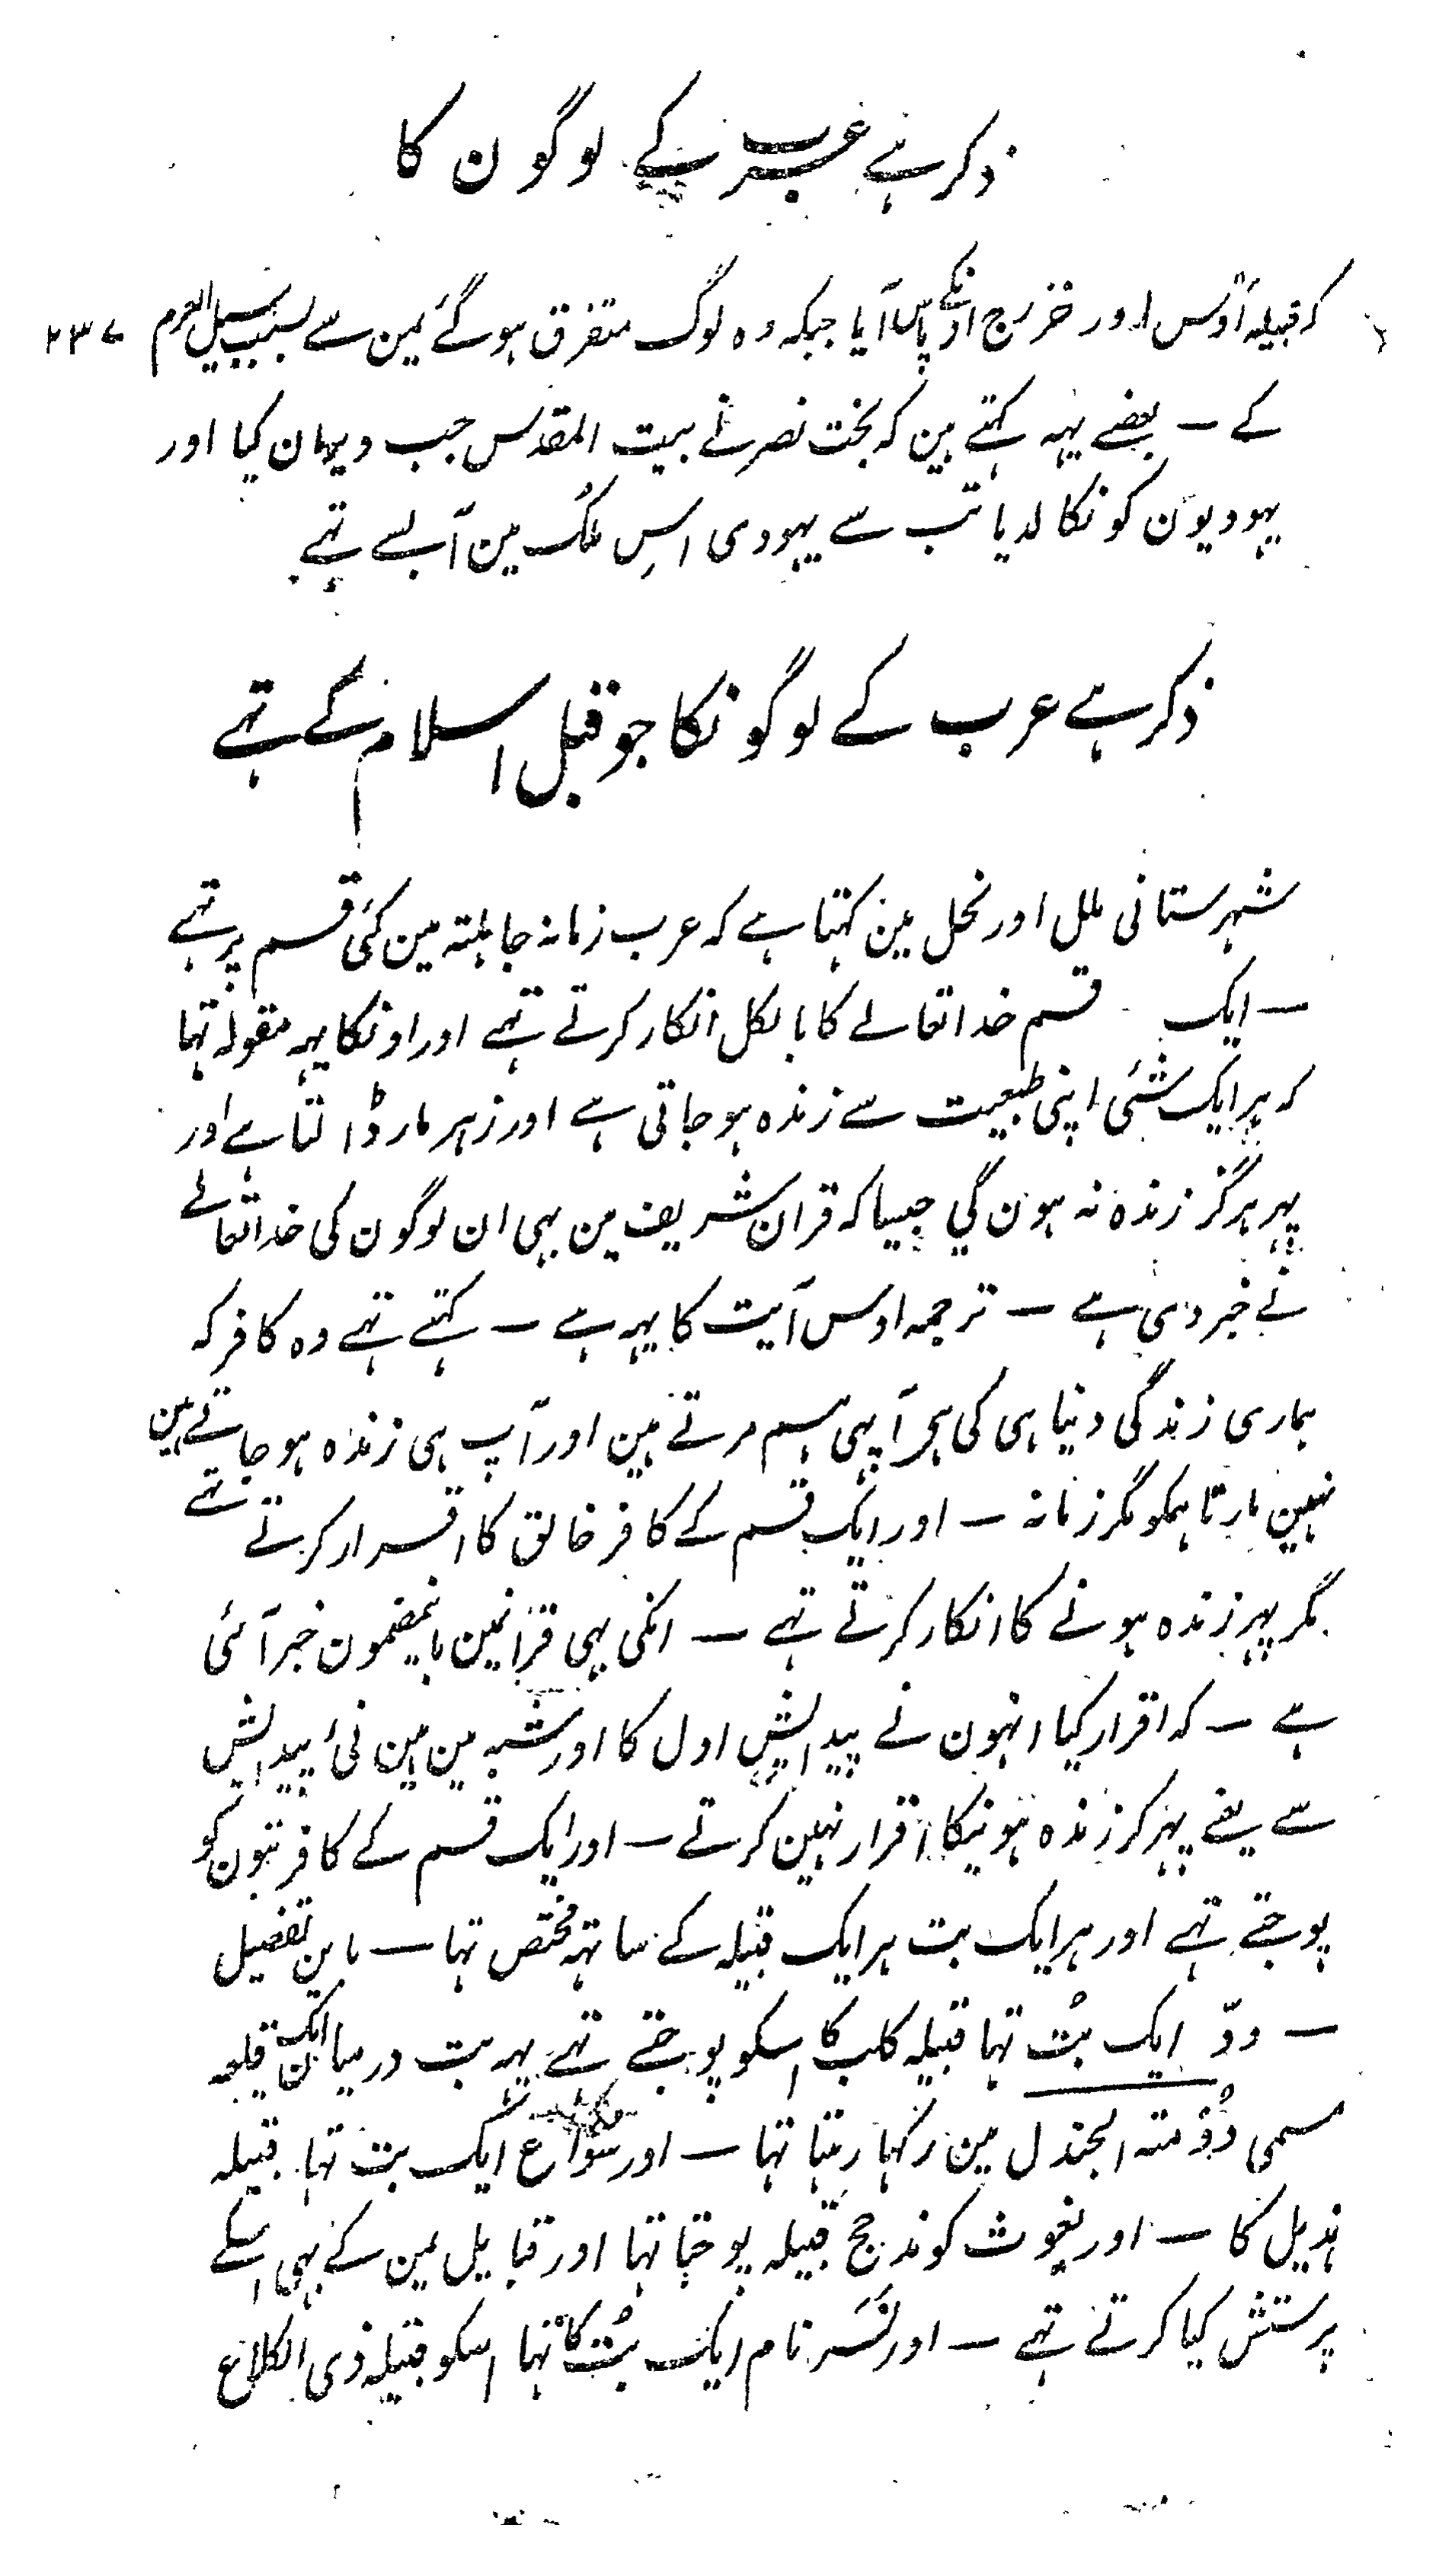 ذکر ہے عرب کے لوگون کا
کہ قبیلہ اَوْس اور خزرج اونکے پاس آیا جبکہ وہ لوگ متفرق ہو گئے یمن سے بسبب سیل العرم ۲۳۷
کے ـ بعضے یہہ کہتے ہین کہ بخت نصر نے بیت المقدس جب ویران کیا اور
یہودیون کو نکالدیا تب سے یہودی اسِ ملک مین آبسے تہے
ذکر ہے عرب کے لوگونکا جو قبل اسلام کے تہے
شہرستانی ملل اور نحل مین کہتا ہے کہ عرب زمانہ جاہلیتہ مین کئی قسم پر تہے
ـ ایک قسم خدا تعالے کا بالکل انکار کرتے تہے اور اونکا یہہ مقولہ تہا
کہ ہر ایک شئی اپنی طبعیت سے زندہ ہو جاتی ہے اور زہر مار ڈالتا ہے اور
پہر ہرگز زندہ نہ ہون گی جیسا کہ قران شریف مین بہی ان لوگون کی خدا تعالے
نے خبر دی ہے ـ ترجمہ اوس آیت کا یہہ ہے ـ کہتے تہے وہ کافر کہ
ہماری زندگی دنیا ہی کی ہی آپہی ہم مرتے ہین اور آپ ہی زندہ ہو جاتے ہین
نہین مارتا ہمکو مگر زمانہ ـ اور ایک قسم کے کافر خالق کا اقرار کرتے تہے
مگر پہر زندہ ہونے کا انکار کرتے تہے ـ انکی بہی قرانمین باینمضمون خبر آئی
ہے ـ کہ اقرار کیا انہون نے پیدایش اول کا اور شبہ مین ہین نئی پیدایش
سے یعنے پہر کر زندہ ہونیکا اقرار نہین کرتے ـ اور ایک قسم کے کافر بتون کو
پوجتے تہے اور ہر ایک بت ہر ایک قبیلہ کے ساتہہ مختص تہا ـ باین تفصیل
ـ ودّ ایک بُت تہا قبیلہ کلب کا اسکو پوجتے تہے یہہ بت درمیان ایک قلعہ
مسمی دُوْمتہ الجندل مین رکہا رہتا تہا ـ اور سُواع ایک بت تہا قبیلہ
ہذیل کا ـ اور یغوث کو مذحج قبیلہ پوجتا تہا اور قبایل یمن کے بہی اسکے
پرستش کیا کرتے تہے ـ اور نَسَر نام ایک بُت کا تہا اسکو قبیلہ ذی الکلاع